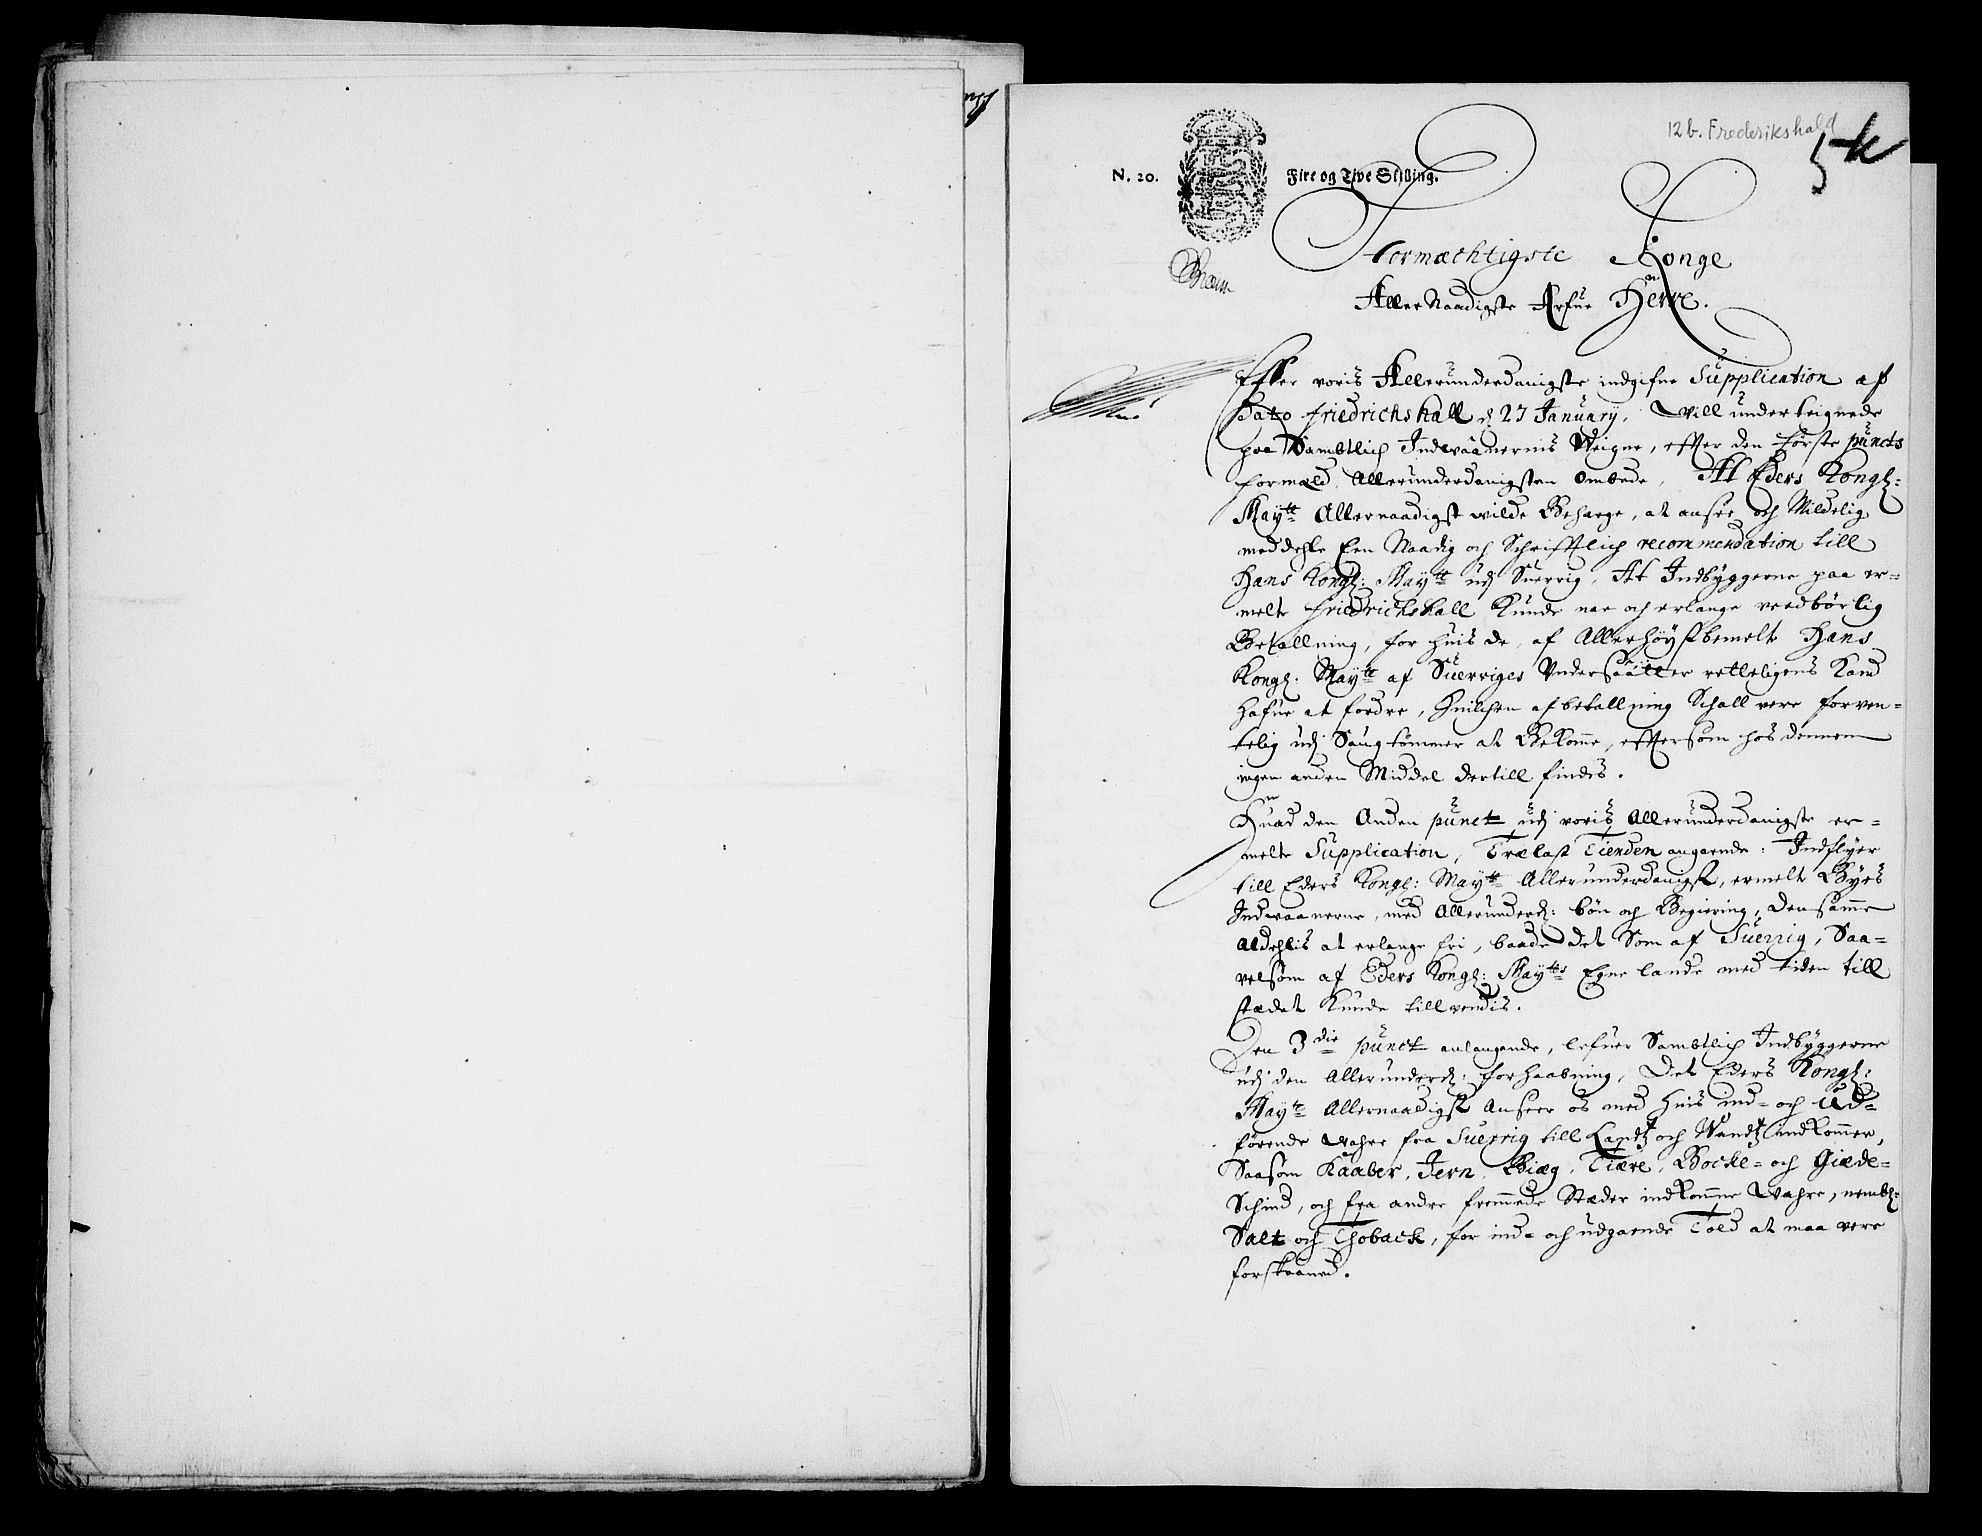 12 b. Frederikshald
5
N. 20. Fire og Tive Skilling.
Stormæchtigste Konge
Aller Naadigste Arfue Herre.
Effter voris Allerunderdanigste indgifne Supplication af
Dato friedrichshall d 27 January, Will underteignede
paa Sambtlich Indwaanernis Weigne, effter den første puncts
formæld, Allerunderdanigsten ombede, At Eders Kongl:
Maytt Allernaadigst wilde Behage, at ansee och Mildelig
meddehle Een Naadig och Schrifftlich recommendation till
Hans Kongl: Maytt udj Suerrig, At Indbyggerne paa er-
melte friedrichshall Kunde naa och erlange veedbørlig
Betallning, for huis de, af Allerhøystbemelte Hans
Kongl: Maytt af Suerriges Undersaatter retteligens Kand
hafue at fordre, huilchen afbetallning Schall vere forven-
telig udj Saugtømmer at Bekomme, effttersom hos dennem
ingen anden Middel dertill findes.
Huad den Anden punct udj voris Allerunderdanigste er-
melte Supplication, Trælast Tienden angaaende: Indflyer
till Eders Kongl: Maytt Allerunderdanigst, ermelt Byes
Indwaanerne, med Allerunderd: bøn och Begiering, Den samme
aldehlis at erlange fri, baade det Som af Suerrig, Saa-
velsom af Eders Kongl: Maytts Egne lande med tiden till
stædet Kunde tillvendis.
Den 3die punct anlangende, lefuer Sambtlich Indbyggerne
udj den Allerunderd: forhaabning, Det Eders Kongl:
Maytt Allernaadigst Anseer os med huis ind- och ud-
førende Wahre fra Suerrig till Landtz och Wandtz indkommer,
Saasom Kaaber, Jern, Biæg, Tiære, Bocke- och Giede-
Schind, och fra andre fremmede Stæder indkomne Wahre, nembl:
Salt och Thoback, for ind- och udgaaende Told at maa vere
forskaaned.